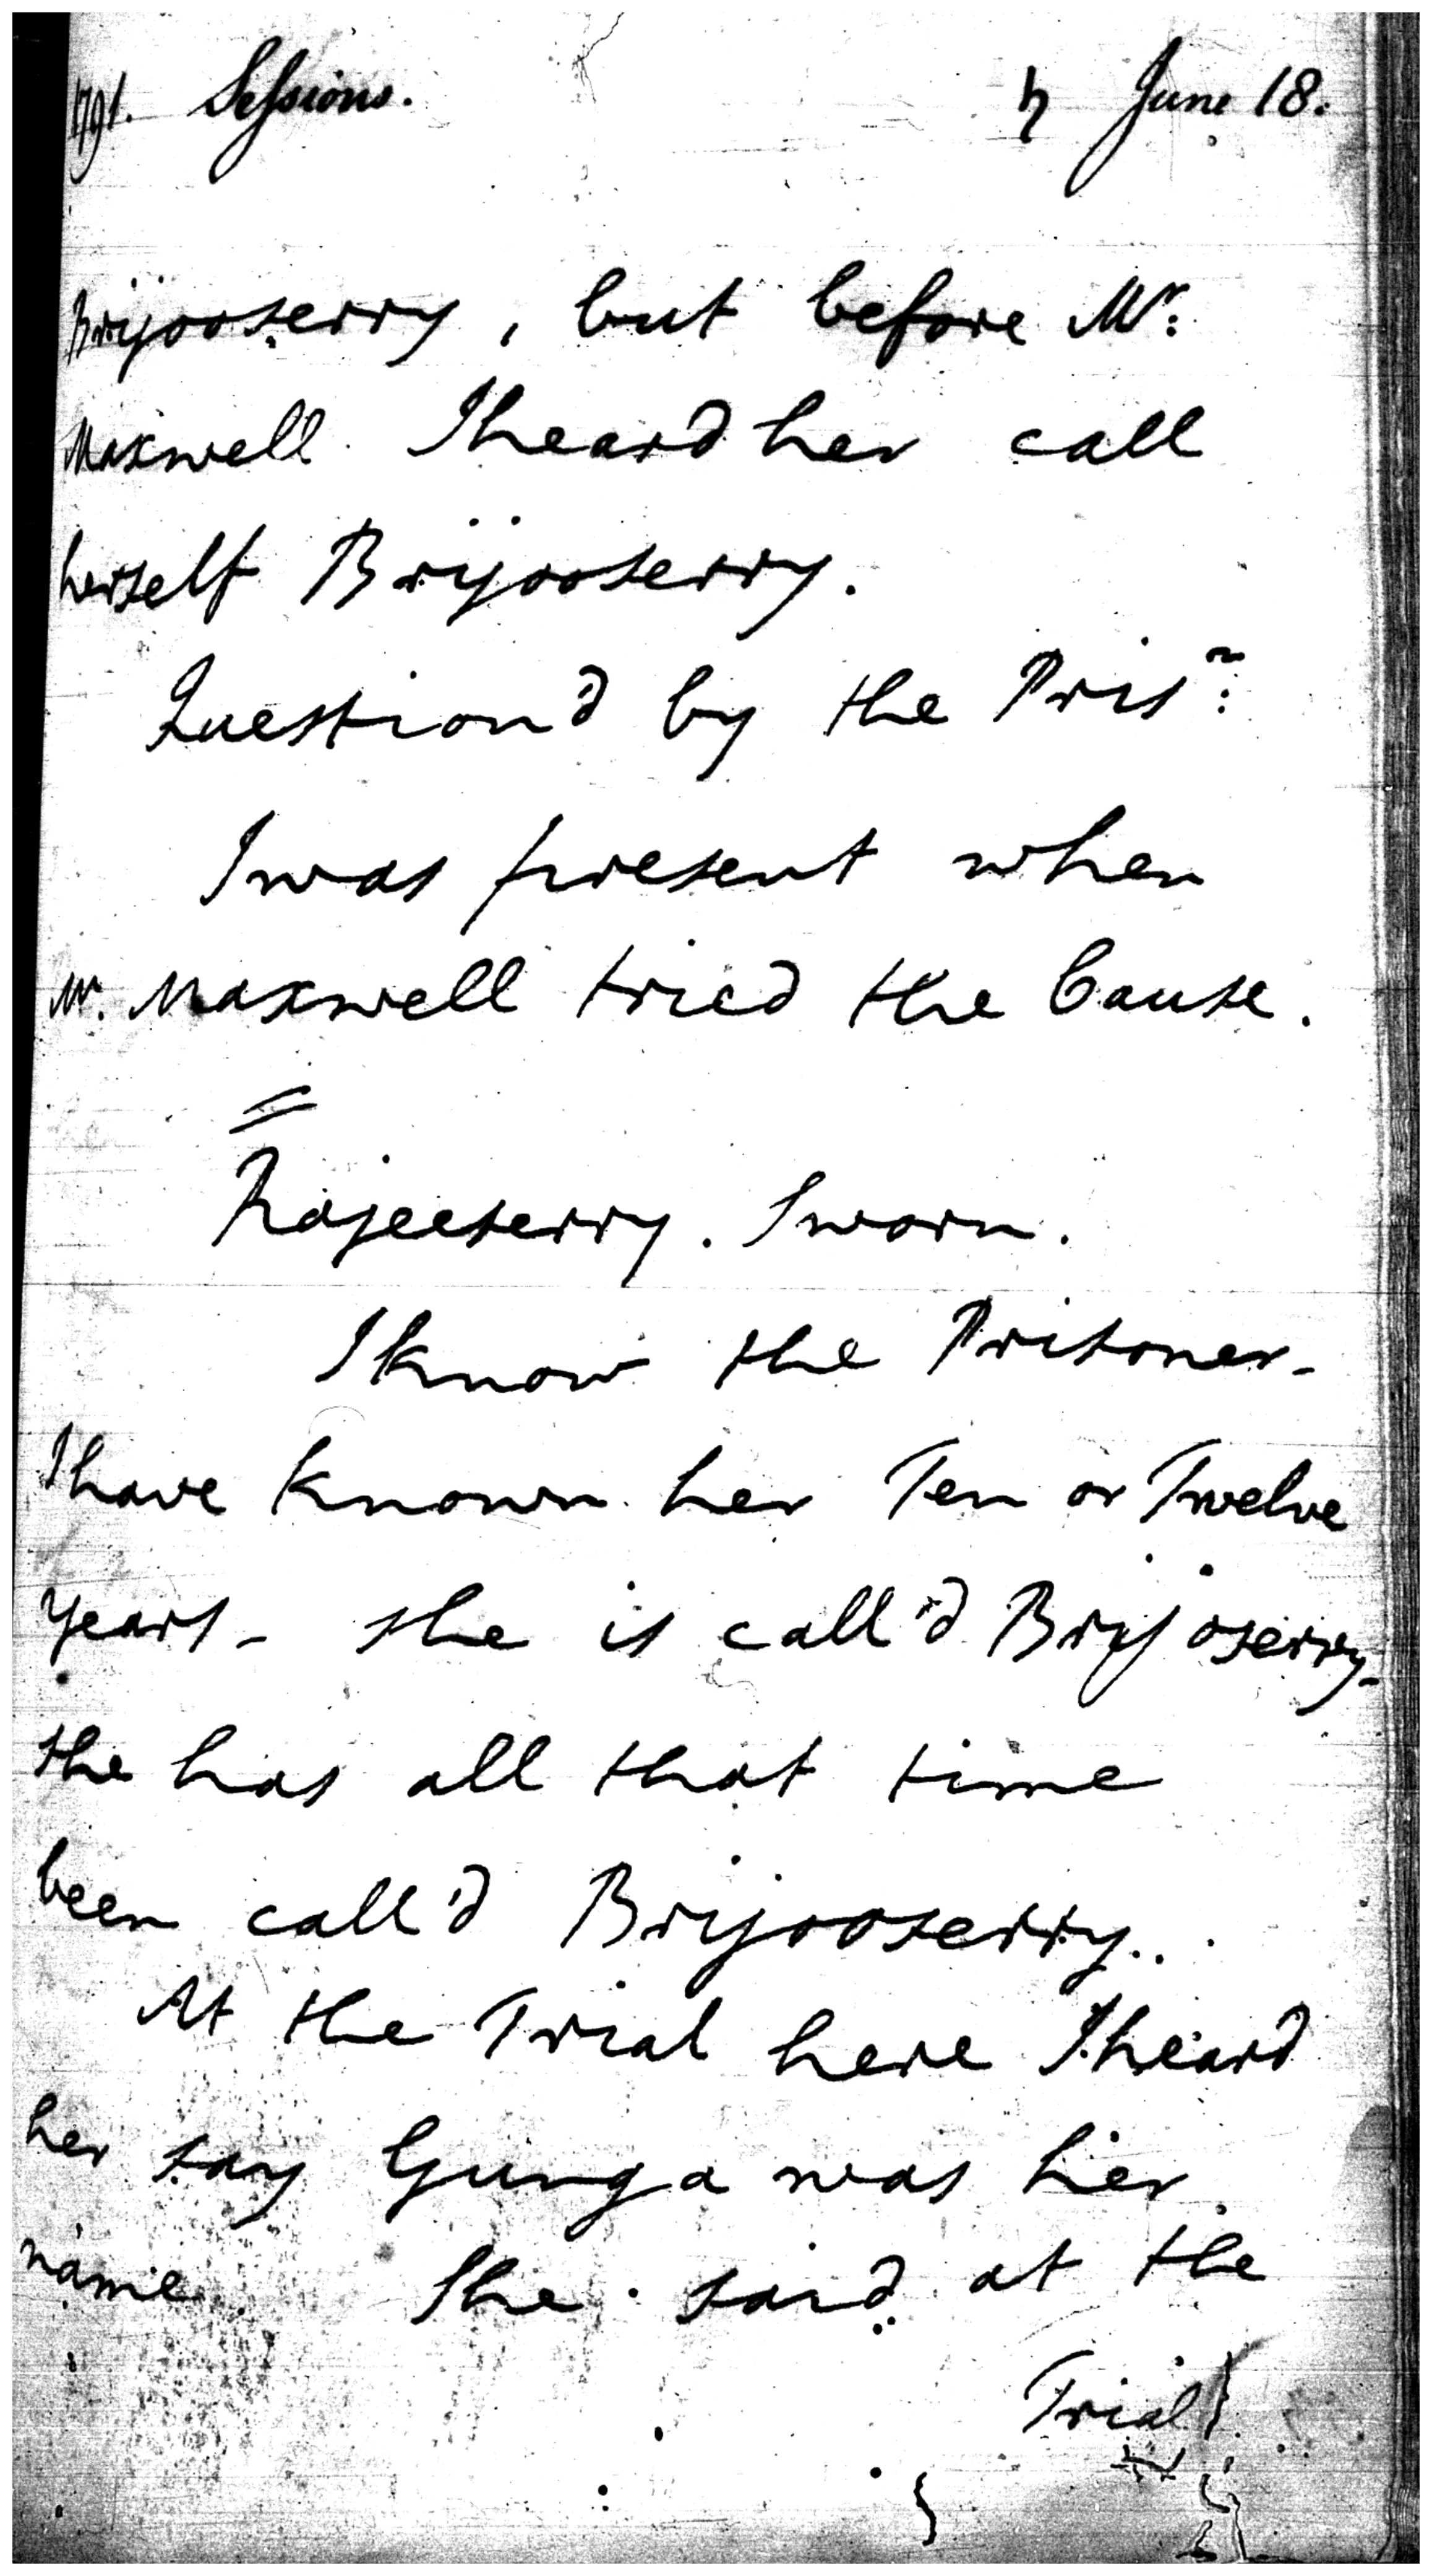 1791. Sessions. ♄ June 18.
Brijooserry, but before Mr.
Maxwell. I heard her call
herself Brijooserry.
Question'd by the Prisr.
I was present when
Mr. Maxwell tried the Cause.
Rajeeserry. Sworn.
I know the Prisoner -
I have known her Ten or Twelve
years - she is call'd Brijoserry -
she has all that time
been call'd Brijooserry..
At the Trial here I heard
her say Gunga was her
name. She said at the
Trial